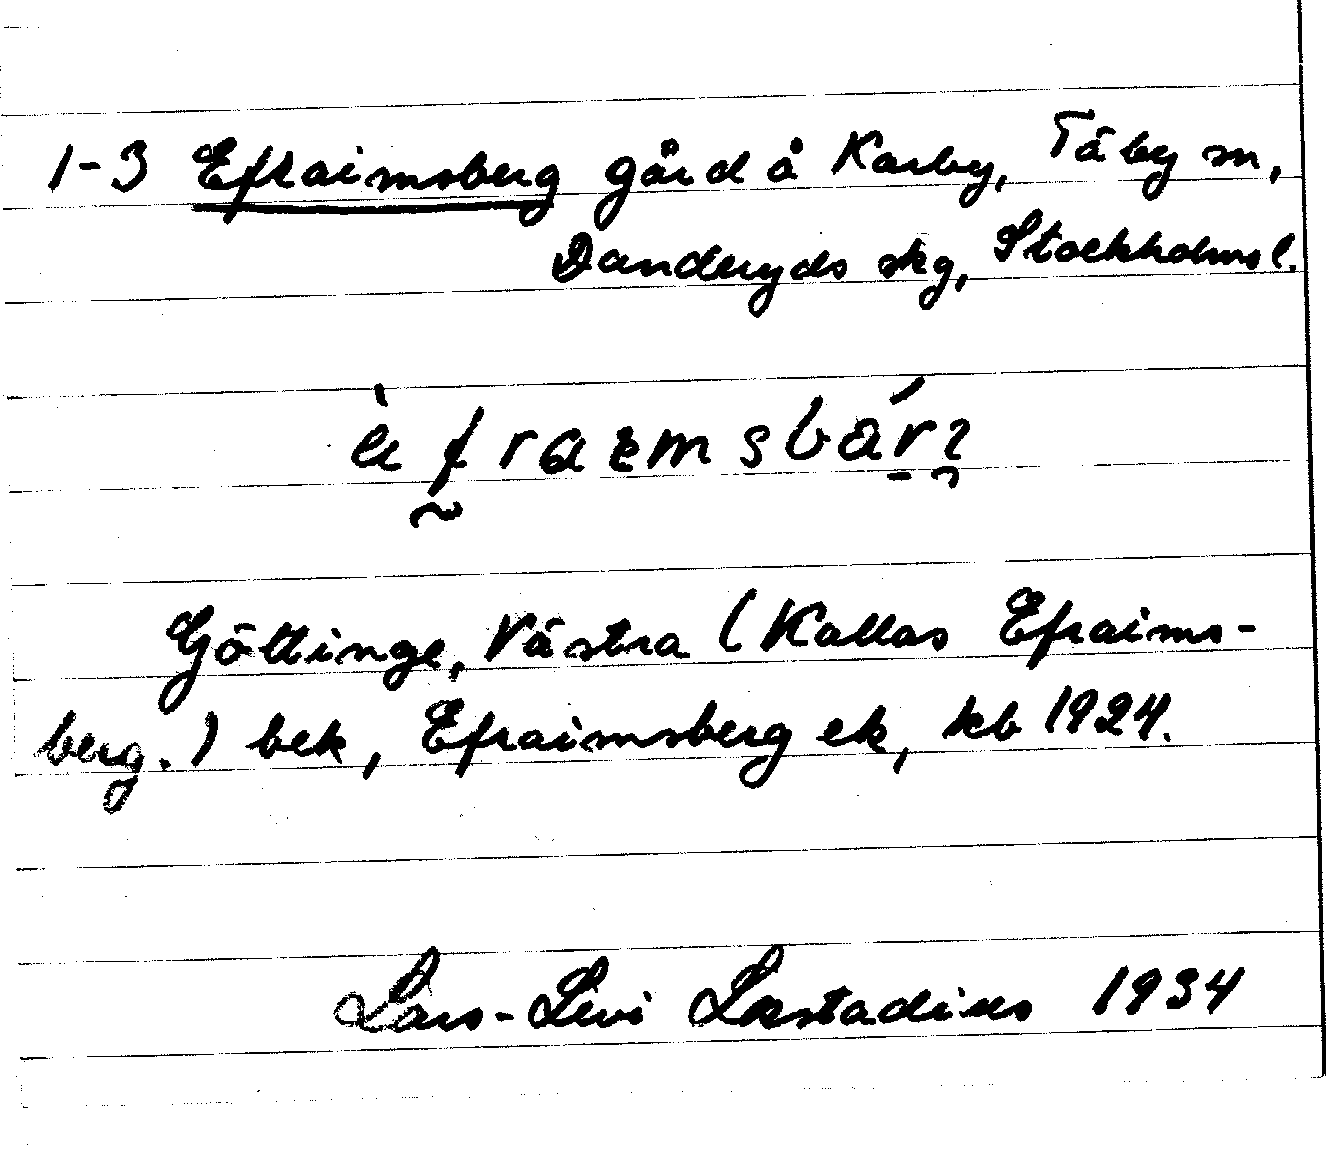 1-3 Efraimsberg gård å Karby, Täby sn,
Danderyds skg, Stockholms l.
Göttinge, Västra (Kallas Efraims-
berg.) bek, Efraimsberg ek, kb 1924.
Lars-Levi Læstadius 1934